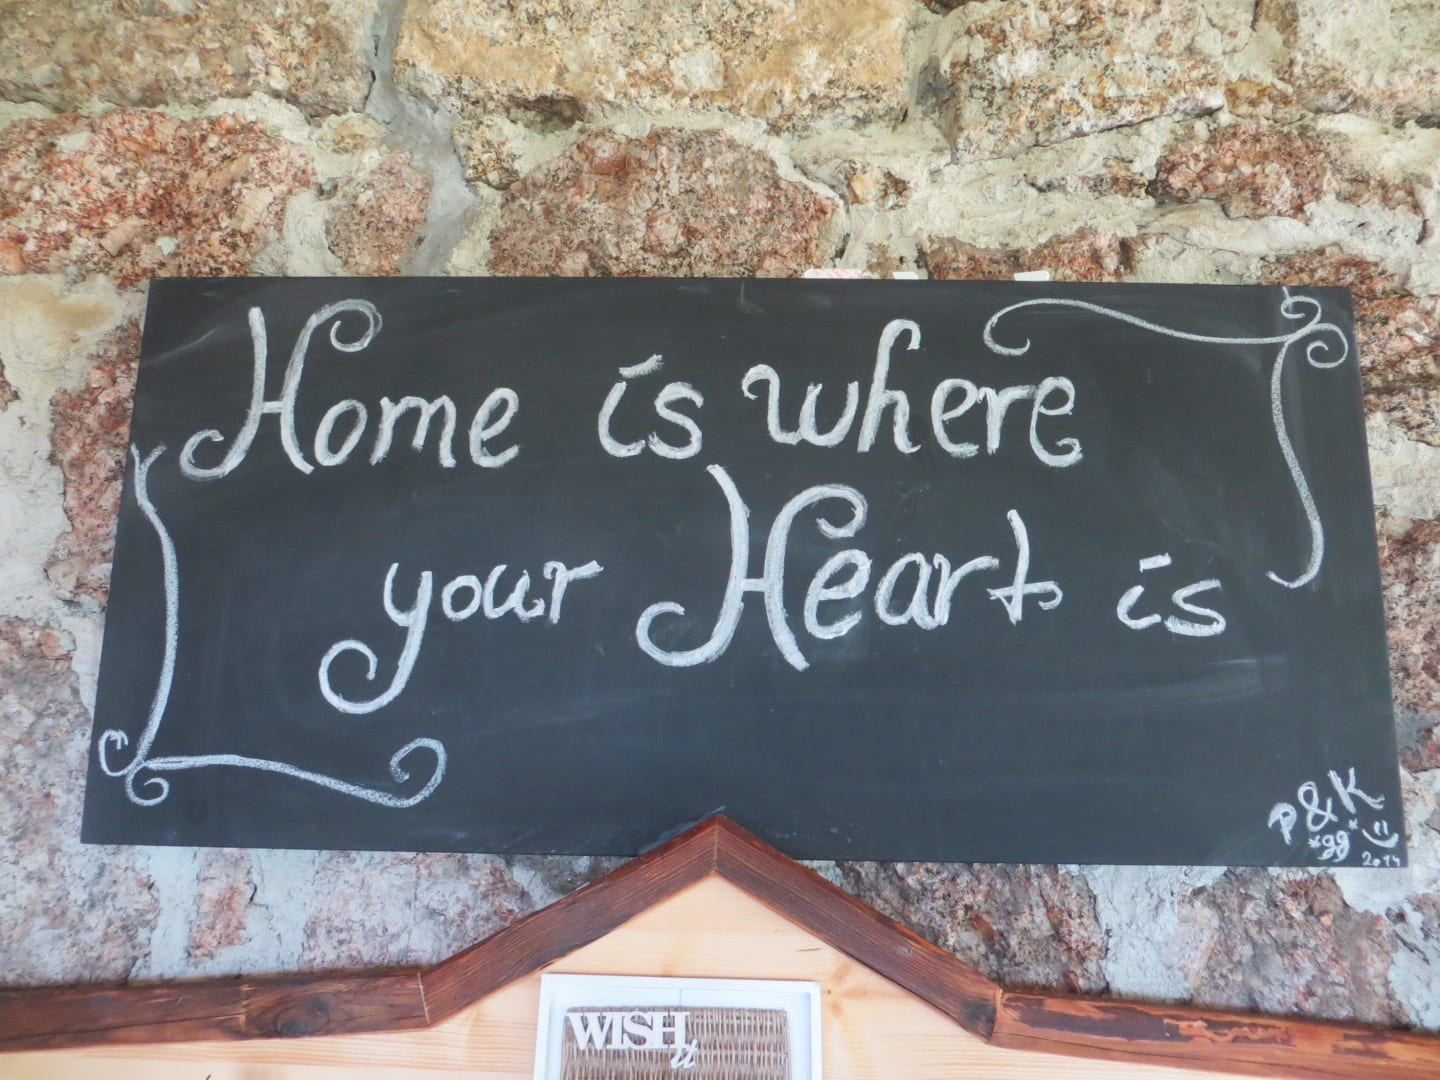 Home is where
your Heart is
P&K
*gg*
2014
WISH
it